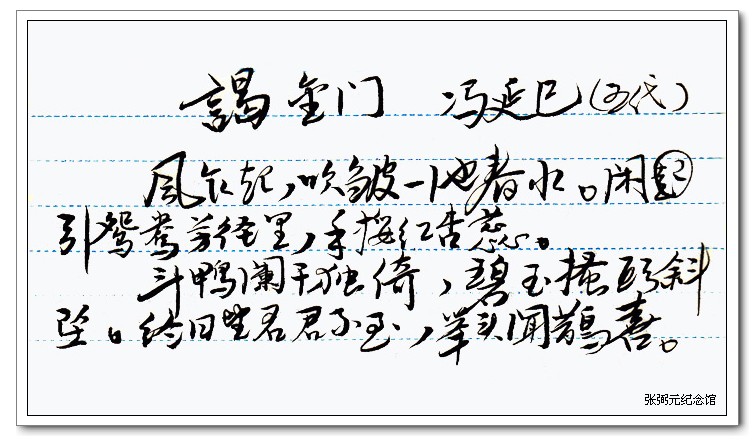 謁金门 冯延巳(五代)
風乍起,吹皱一池春水。闲起
引鸳鸯芳径里,手挼红杏蕊。
斗鸭阑干独倚,碧玉搔头斜
坠。终日望君君不至,举头闻鹊喜。
张弼元纪念馆